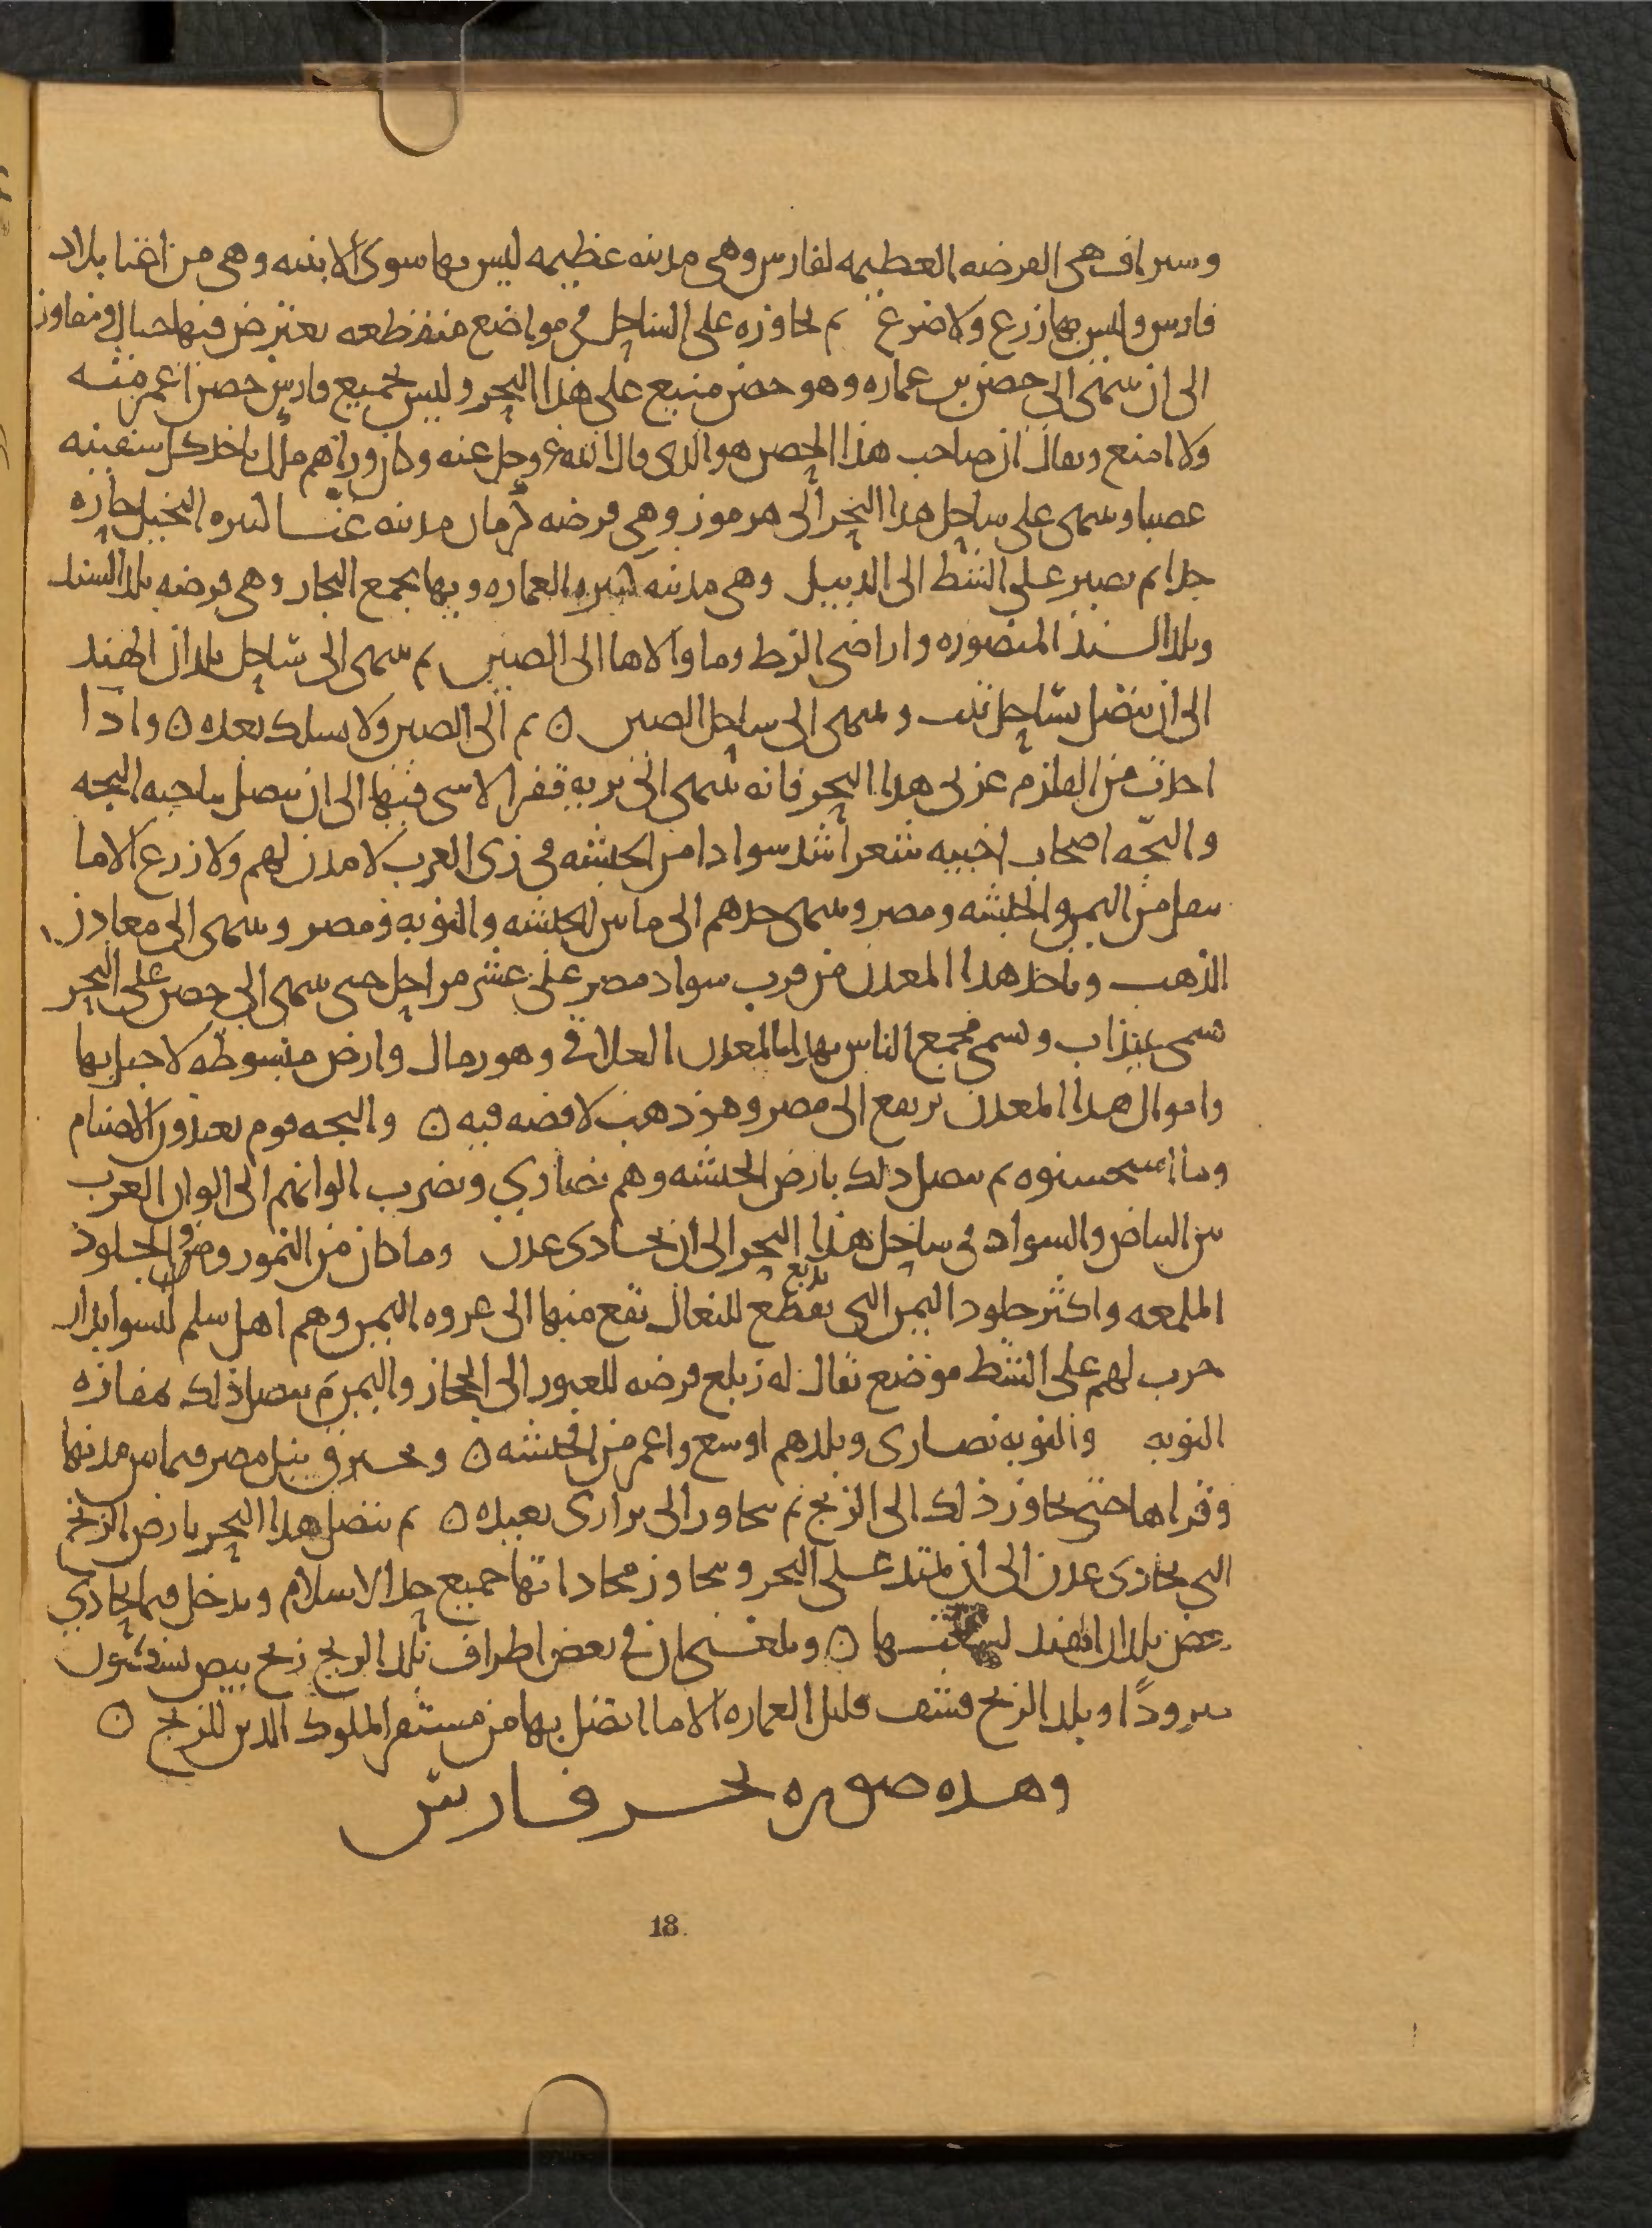 وسيراف هى الفرضه العظيمه لفارس وهى مدينه عظيمه ليس بها سوى الابنيه وهى من اغنا بلاد
فارس وليس بها زرع ولا ضرع ثم تجاوزه على الساحل فى مواضع منقطعه يعترض فيها جبال ومفاوز
الى ان ينتهى الى حصن بن عماره وهو حصن منيع على هذا البحر وليس بجميع فارس حصن اعمر منه
ولا امنع ويقال ان صاحب هذا الحصن هو الذى قال الله عز وجل عنه وكان وراهم ملك ياخذ كل سفينه
غصبا وينتهى على ساحل هذا البحر الى هرموز وهى فرضه كرمان مدينه غنا كثيره النخيل حاره
جدا ثم تصير على الشط الى الديبل وهى مدينه كثيره العماره وبها مجمع التجار وهى فرضه بلد السند
وبلد السند المنصوره واراضى الزط وما والاها الى الصين ثم ينتهى الى ساحل بلدان الهند
الى ان يتصل بساحل تبت وينتهى الى ساحل الصين ٥ ثم الى الصين ولا يسلك بعده ٥ واذا
اخذت من القلزم غربى هذا البحر فانه ينتهى الى بريه قفر لا شى فيها الى ان يتصل بناحيه البجه
والبجّه اصحاب اخبيه شعر اشد سوادا من الحبشه فى زى العرب لا مدن لهم ولا زرع الا ما
ينقل من اليمن والحبشه ومصر وينتهى حدهم الى ما بين الحبشه والنوبه ومصر وينتهى الى معادن
الذهب وياخذ هذا المعدن من قرب سواد مصر على عشر مراحل حتى ينتهى الى حصن على البحر
يسمى عيذاب ويسمى مجمع الناس بهذا المعدن العلاقى وهو رمال وارض مبسوطه لا جبل بها
واموال هذا المعدن يرتفع الى مصر وهو ذهب لا فضه فيه ٥ والبجه قوم يعبدون الاصنام
وما استحسنوه ثم يتصل ذلك بارض الحبشه وهم نصارى وتضرب الوانهم الى الوان العرب
بين البياض والسواد فى ساحل هذا البحر الى ان يحاذى عدن وما كان من النمور ومن الجلود
الملمعه واكثر جلود اليمن التى تدبغ تقطع للنعال تقع منها الى عروه اليمن وهم اهل سلم ليسوا بدار
حرب لهم على الشط موضع يقال له زيلع فرضه للعبور الى الحجاز واليمن ثم يتصل ذلك بمفازه
النوبه والنوبه نصارى وبلدهم اوسع واعمر من الحبشه ٥ ويخترق نيل مصر فيما بين مدنها
وقراها حتى يجاوز ذلك الى الزنج ثم يتجاوز الى برارى بعيده ٥ ثم يتصل هذا البحر بارض الزنج
التى يحاذى عدن الى ان يمتد على البحر ويتجاوز محاذاتها جميع حد الاسلام ويدخل فيما يحاذى
بعض بلدان الهند ٥ وبلغنى ان فى بعض اطراف بلد الزنج زنج بيض
بلد الزنج قشف قليل العماره الا ما اتصل بها من مستقر الملوك الذين للزنج ٥
وهذه صوره بحر فارس
18